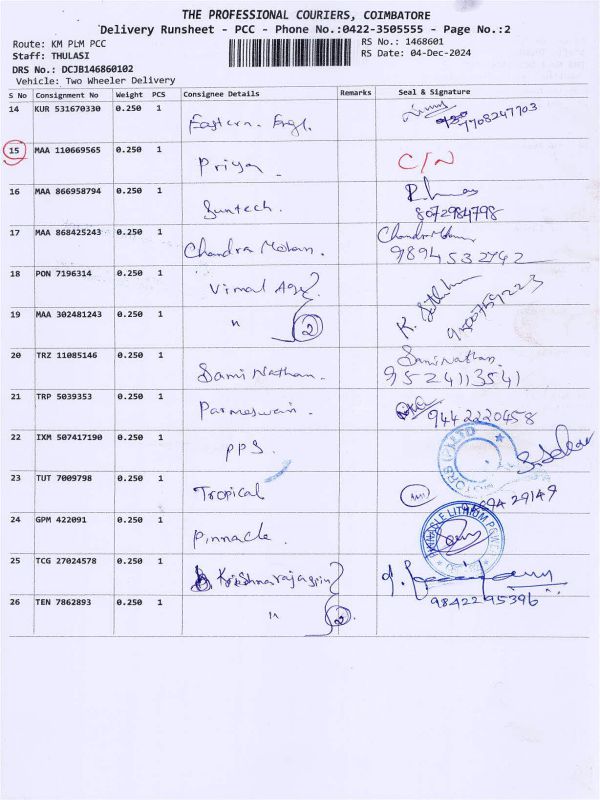 THE PROFESSIONAL COURIERS, COIMBATORE
Delivery Runsheet - PCC - Phone No.:0422-3505555 - Page No.:2
Route: KM PLM PCC
Staff: THULASI
DRS No.: DCJB146860102
Vehicle: Two Wheeler Delivery
RS No.: 1468601
RS Date: 04-Dec-2024
S No Consignment No Weight PCS Consignee Details Remarks Seal & Signature
14 KUR 531670330 0.250 1 Eastern. Engl. 7708247703
15 MAA 110669565 0.250 1 Priya. C/N
16 MAA 866958794 0.250 1 Suntech. 8072984798
17 MAA 868425243 0.250 1 Chandra Mohan. Chandra Mohan
9894532742
18 PON 7196314 0.250 1 Vimal Age
19 MAA 302481243 0.250 1 " 2
20 TRZ 11085146 0.250 1 Sami Nathan. Sami Nathan.
9524113541
21 TRP 5039353 0.250 1 Parmeswari. 9442220458
22 IXM 507417190 0.250 1 PPS.
23 TUT 7009798 0.250 1 Tropical
24 GPM 422091 0.250 1 Pinnacle.
25 TCG 27024578 0.250 1 Krishnarajagiri
26 TEN 7862893 0.250 1 " 2 9842295396